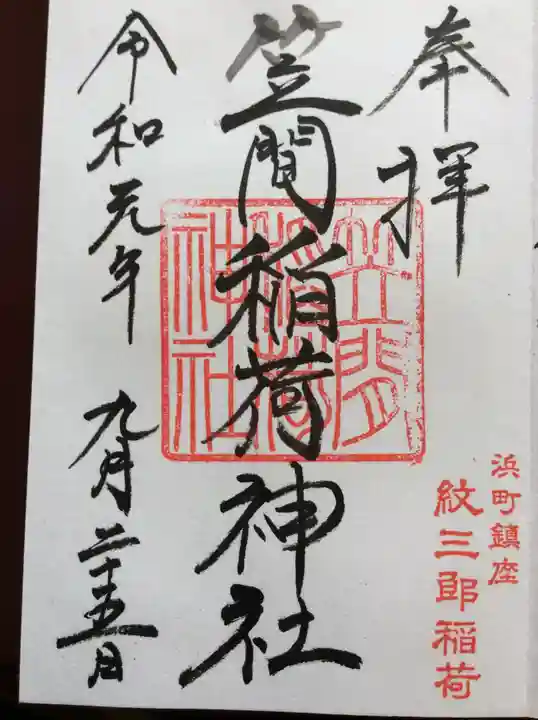 奉拝
浜町鎮座
紋三郎稲荷
笠間稲荷神社
笠間
稲荷
神社
令和元年 九月二十五日